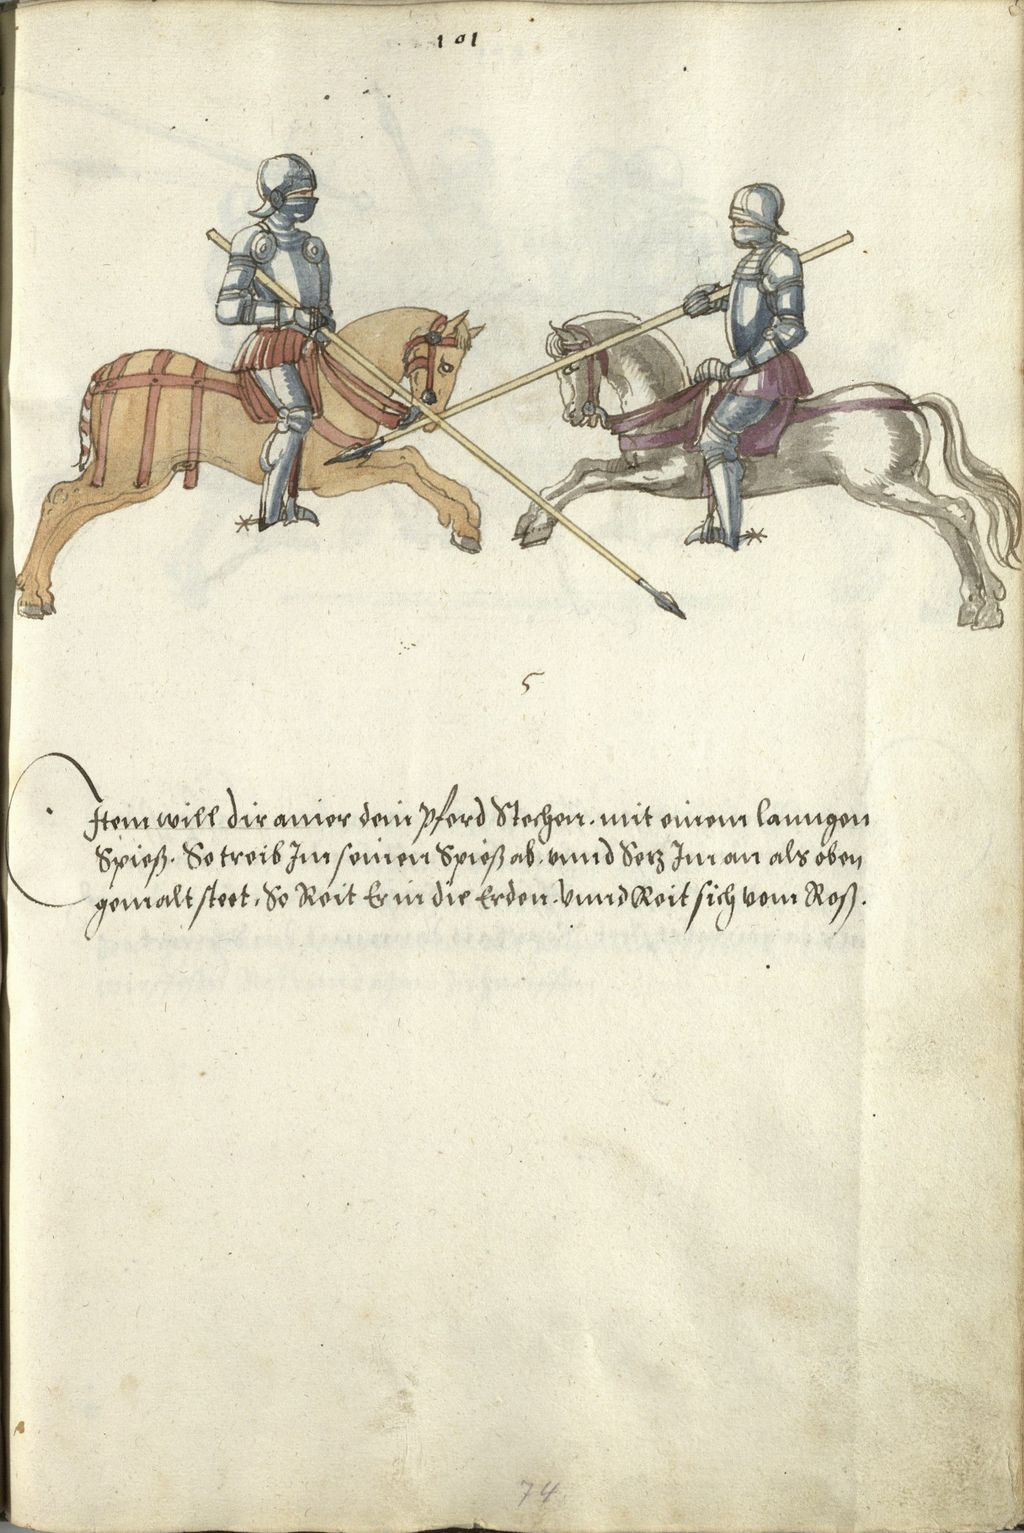 101
5
Item will dir ainer dein pferd Stechen. mit einem lanngen
Spieß. So treib Im seinen Spieß ab. vnnd Setz Im an als oben
gemalt steet. So Reit Er in die Erden. vnnd Reit sich vom Roß.
74